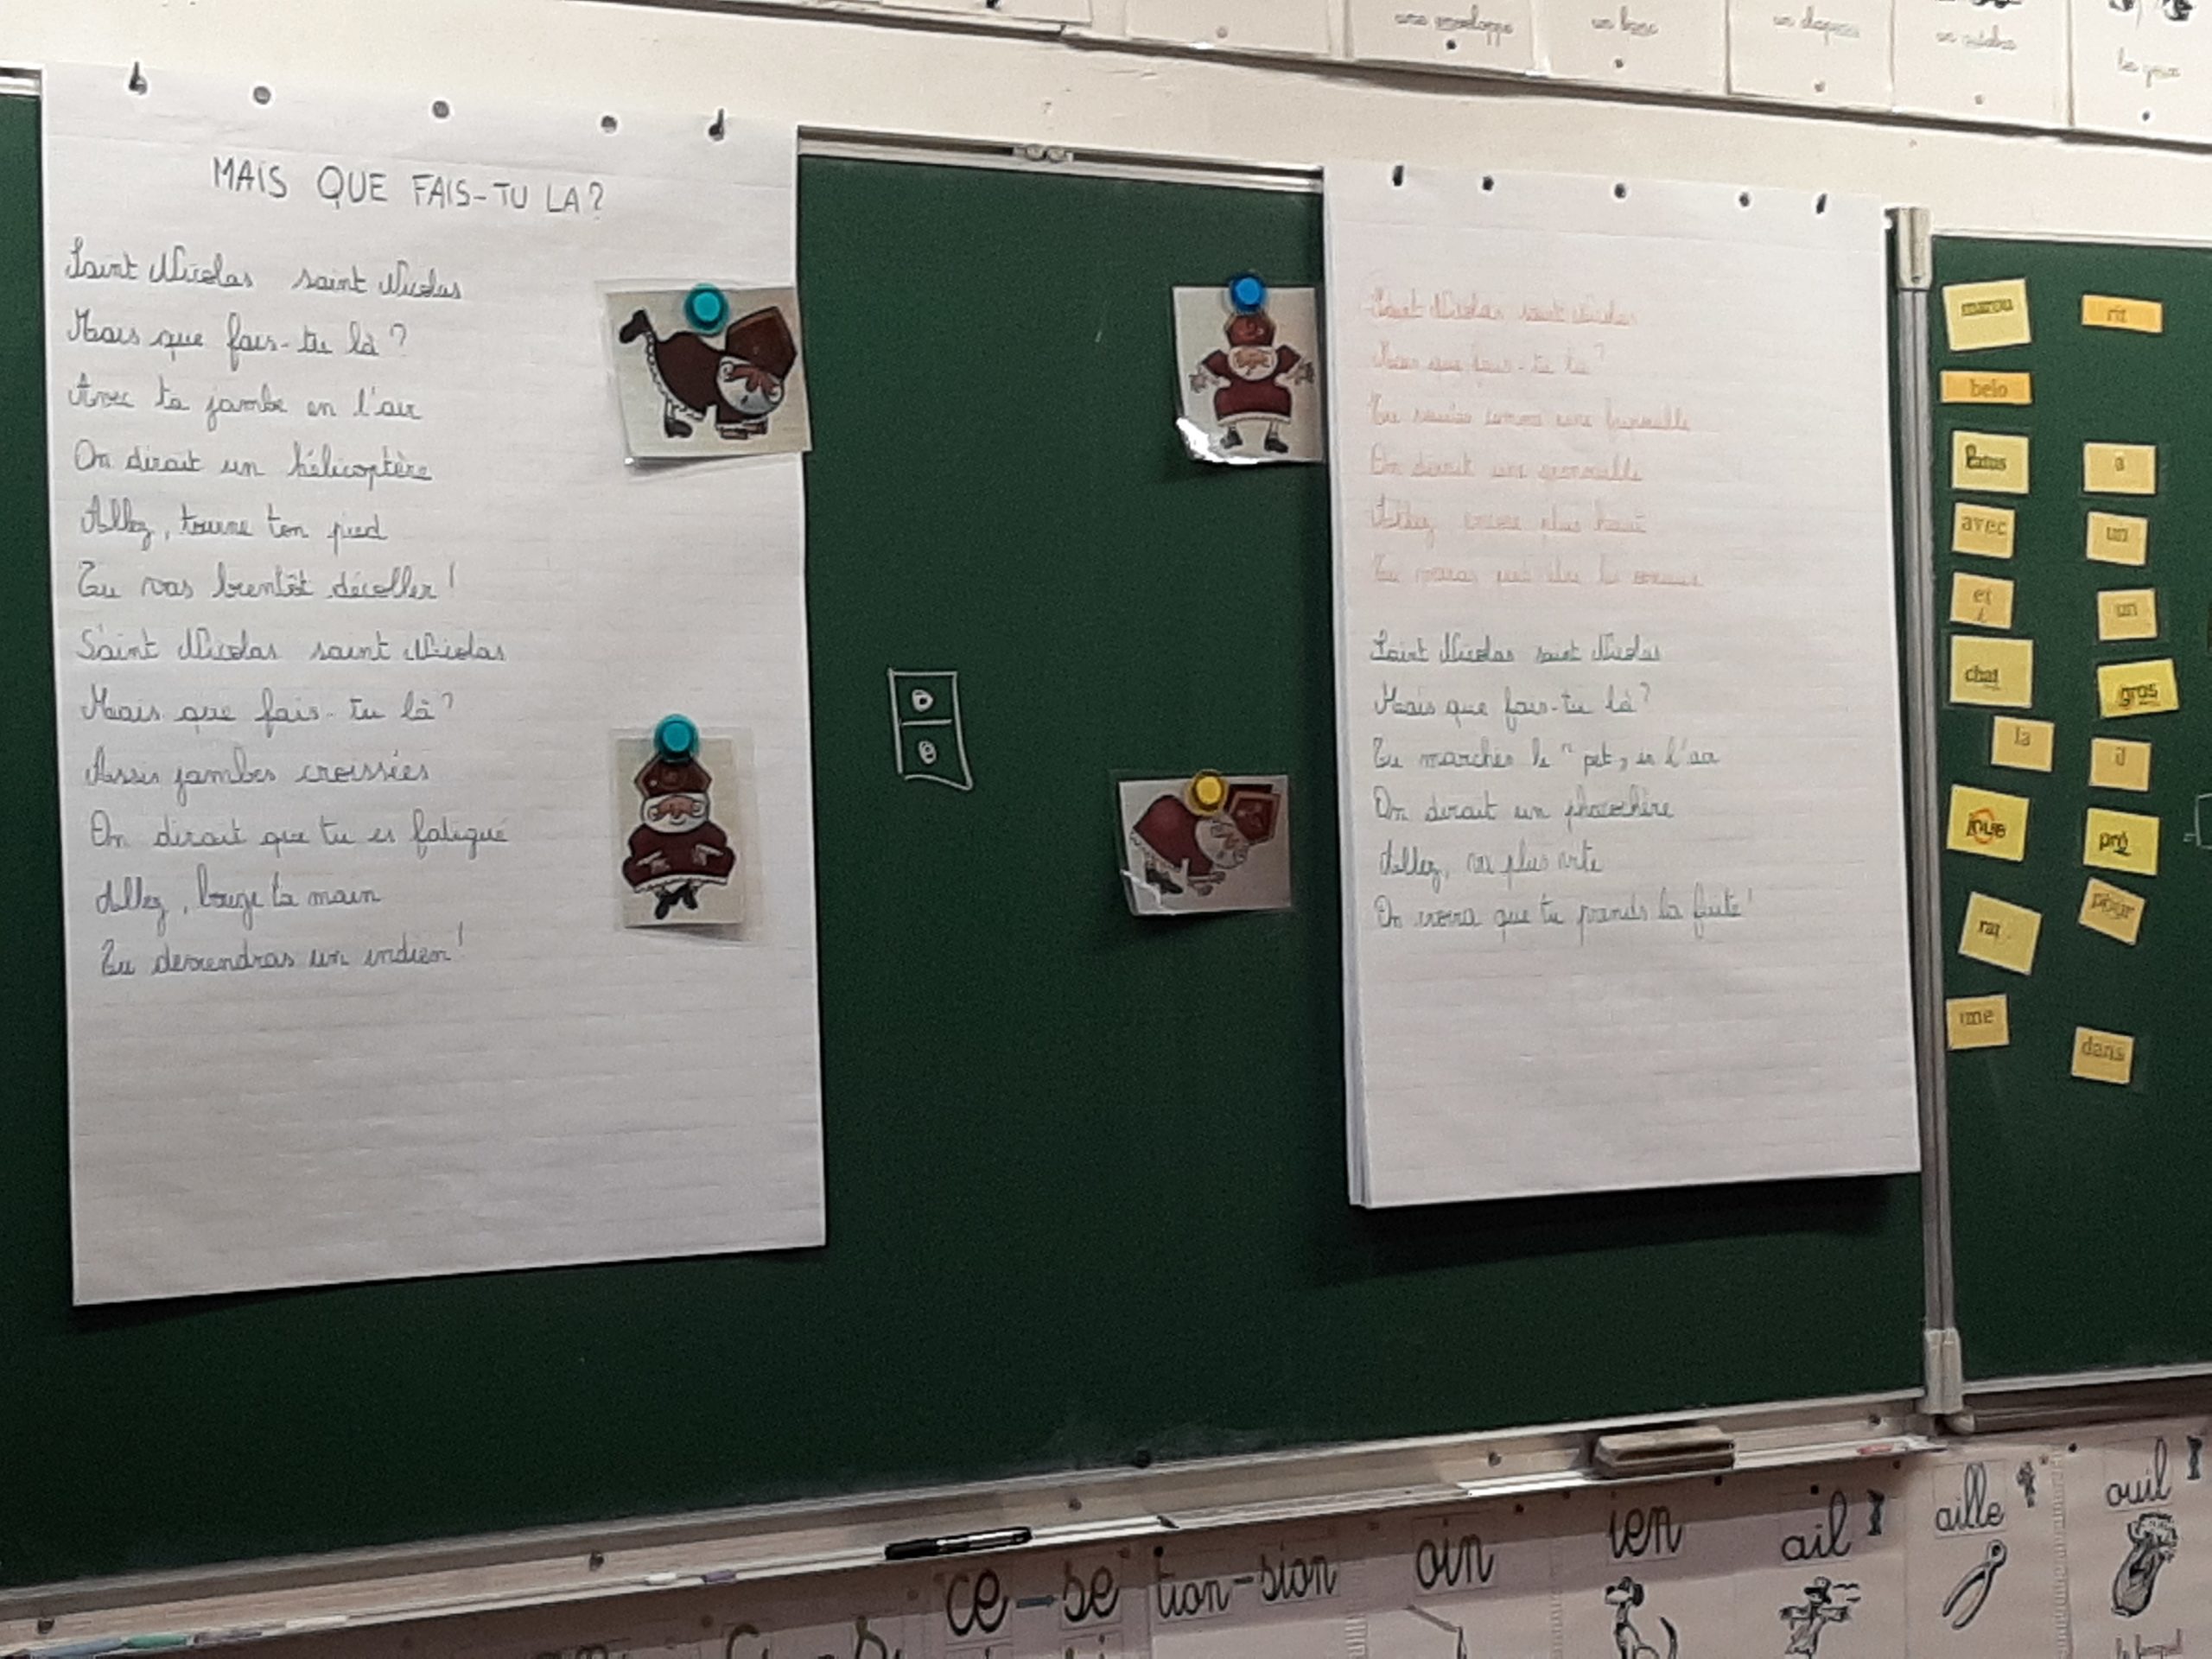 une enveloppe
un banc
les yeux
MAIS QUE FAIS-TU LA?
Saint Nicolas saint Nicolas
Mais que fais-tu là ?
Avec ta jambe en l'air
On dirait un hélicoptère
Allez, tourne ton pied
Tu vas bientôt décoller !
Saint Nicolas saint Nicolas
Mais que fais-tu là ?
Assis jambes croissées
On dirait que tu es fatigué
Allez, bouge ta main
Tu deviendras un indien !
Saint Nicolas saint Nicolas
Mais que fais-tu là ?
Tu sautes comme une
On dirait une grenouille
Allez encore plus haut
Tu
Saint Nicolas saint Nicolas
Mais que fais-tu là ?
Tu marches le " pet " en l'air
On dirait un phacochère
Allez, va plus vite
On croira que tu prends la fuite !
marou
rit
belo
Patus
a
avec
un
et
un
chat
gros
la
il
joue
pré
rat
pour
une
dans
ce - se
tion - sion
oin
ien
ail
aille
ouil